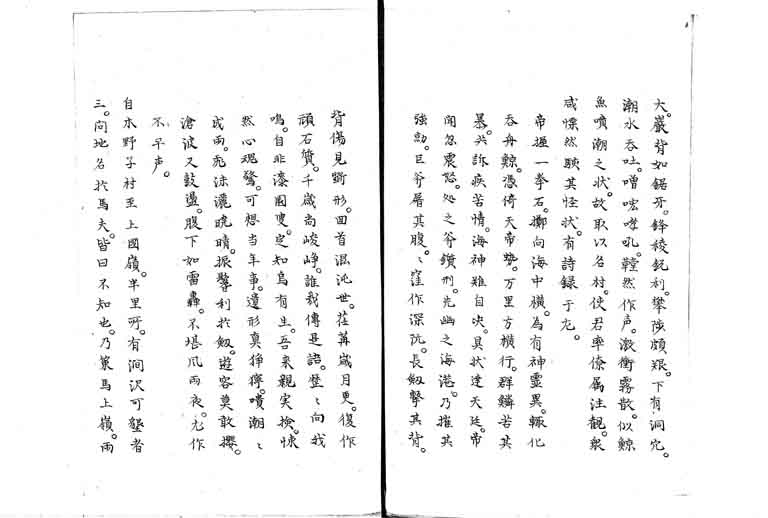 大。巖背如鋸牙。鋒稜銳利。攀陟頗艱。下有洞穴。
潮水吞吐。噌吰哮吼。鞺然作声。激衝霧散。似鯨
魚噴潮之状。故取以名村。使君率僚属注觀。衆
咸慄然駭其怪状。有詩録于左。
帝提一拳石。擲向海中横。為有神霊異。輙化
吞舟鯨。憑倚天帝勢。万里方横行。群鱗苦其
暴。共訴疾苦情。海神難自决。具状達天廷。帝
聞忽震怒。処之斧鑕刑。先幽之海港。乃摧其
強勍。巨斧屠其腹。腹窪作深阬。長剱撃其背。
背傷見斵形。回首混沌世。荏苒歳月更。復作
頑石質。千歳尚峻崢。誰哉傳是語。歴〻向我
鳴。自非漆園叟。定知烏有生。吾来親実撿。悚
然心魂驚。可想当年事。遺形真猙獰。噴潮〻
成雨。飛沫灑晩晴。振鬐利於剱。遊客莫敢攖。
滄波又鼓盪。腹下如雷轟。不堪風雨夜。尤作
不平声。
自木野子村至上國嶺。半里所。有澗沢可墾者
三。问地名於馬夫。皆曰不知也。乃策馬上嶺。雨